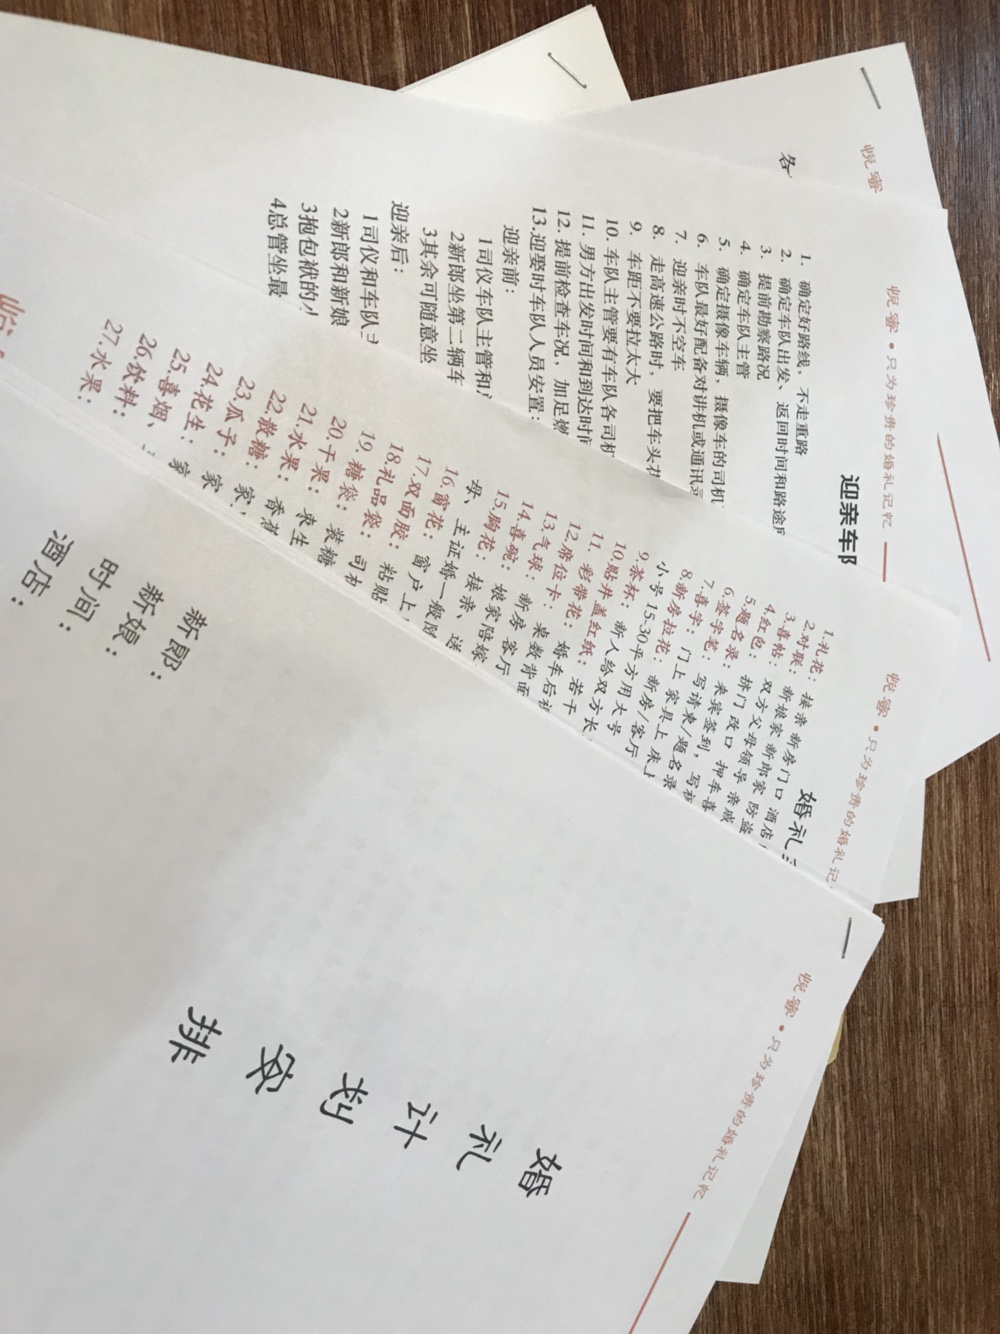 悦蜜
各
悦蜜•只为珍贵的婚礼记忆
迎亲车
1. 确定好路线，不走重路
2. 确定车队出发、返回时间和路途
3. 提前勘察路况
4. 确定车队主管
5. 确定摄像车辆，摄像车的司机
6. 车队最好配备对讲机或通讯
7. 迎亲时不空车
8. 走高速公路时，要把车头
9. 车距不要拉太大
10. 车队主管要有车队各司机
11. 男方出发时间和到达时间
12. 提前检查车况，加足燃
13.迎娶时车队人员安置：
迎亲前：
1司仪车队主管和
2新郎坐第二辆车
3其余可随意坐
迎亲后：
1司仪和车队
2新郎和新娘
3抱包袱的
4总管坐最
悦蜜•只为珍贵的婚礼记
婚礼
1.礼花：接亲 新房门口 酒店
2.对联：新娘家 新郎家 防盗
3.喜帖：双方父母领导 亲戚
4.红包：拼门 改口 押车 喜
5.题名录：来宾签到，写
6.签字笔：写请柬/题名录
7.喜字：门上 家具上 床上
8.新房拉花：新房/客厅
小号 15-30平方用大号
9.茶杯：新人给双方长
10.贴井盖红纸：若干
11. 彩带花：婚车后视
12.席位卡：来数背面
13.气球：新房 客厅
14.喜蛇：娘家陪嫁
15.胸花：接亲、送
母、主证婚一般
16.窗花：窗户上
17.双面胶：粘贴
18.礼品袋：司
19. 糖袋：装糖
20.干果：枣 生
21.水果：香蕉
22.散糖：家
23.瓜子：家
24.花生：家
25.喜烟、
26.饮料：
27.水果：
悦蜜•只为珍贵的婚礼记忆
婚礼计划安排
新郎：
新娘：
时间：
酒店：